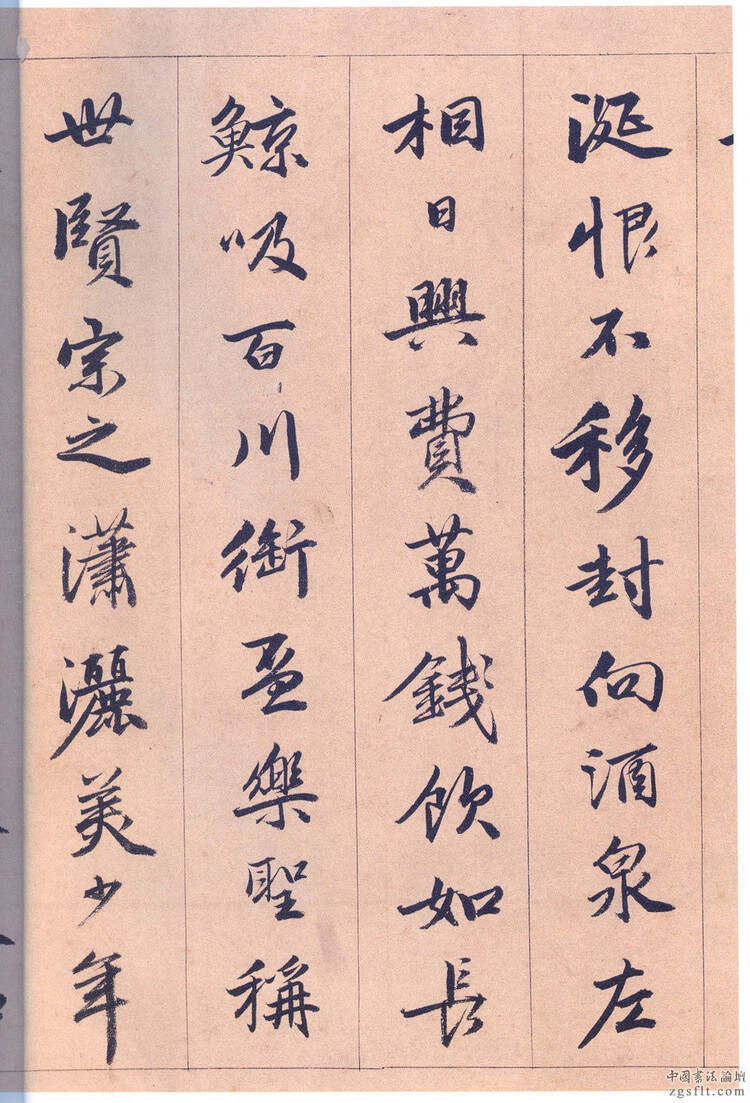 涎恨不移封向酒泉左
相日興費萬錢飲如長
鯨吸百川銜盃樂聖稱
世賢宗之瀟灑美少年
中國書法論壇
zgsflt.com